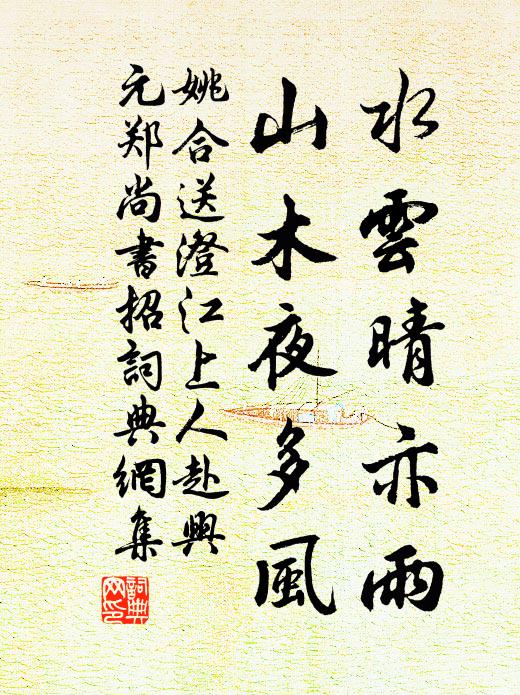 水雲晴亦雨
山木夜多風
姚合送澄江上人赴興
元郑尚書招詞典網集
詞典
网印